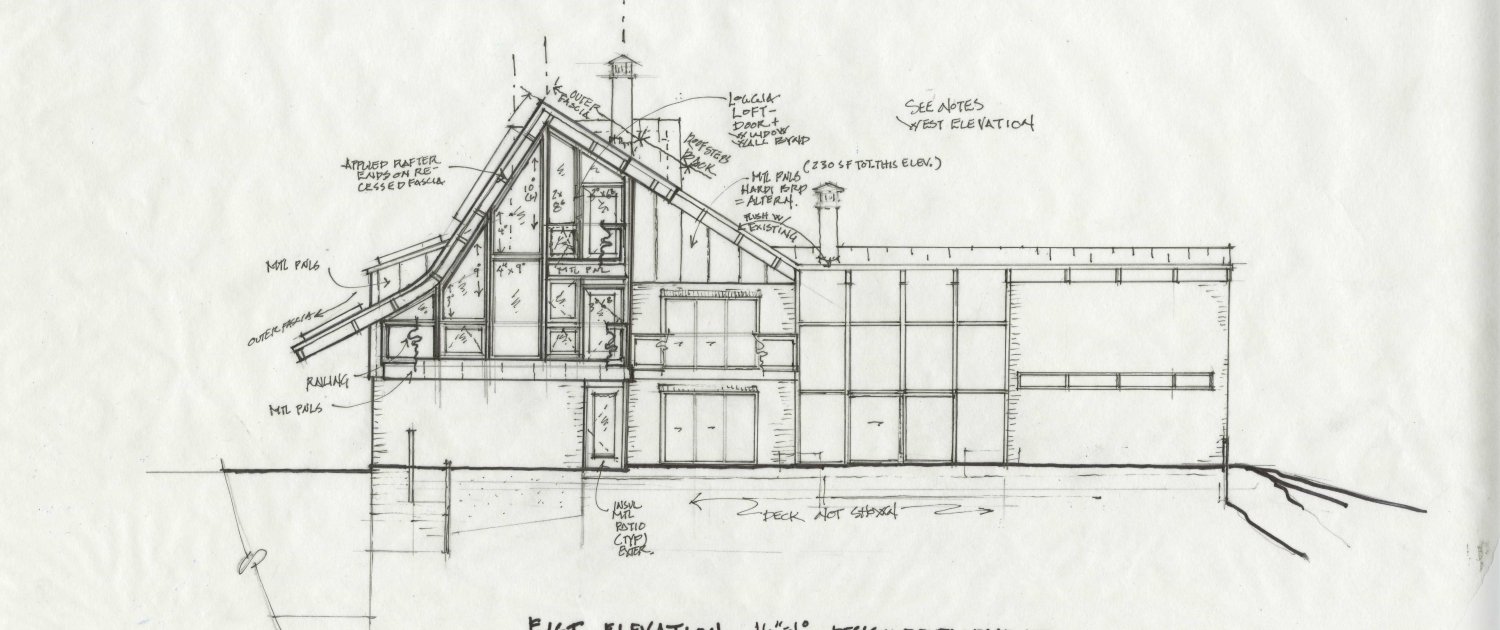 OUTER
FASCIA
LOGGIA
LOFT-
DOOR +
WINDOW
WALL BYND
SEE NOTES
WEST ELEVATION
APPLIED RAFTER
ENDS ON RE-
CESSED FASCIA
ROOF STEPS
BACK
(230 SF TOT. THIS ELEV.)
MTL PNLS
HARDI BRD
= ALTERN.
FLUSH W/
EXISTING
MTL PNLS
4'⁰ x 9⁰
MTL PNL
OUTER FASCIA
RAILING
MTL PNLS
INSUL
MTL
PATIO
(TYP)
EXTER.
DECK NOT SHOWN
EAST ELEVATION